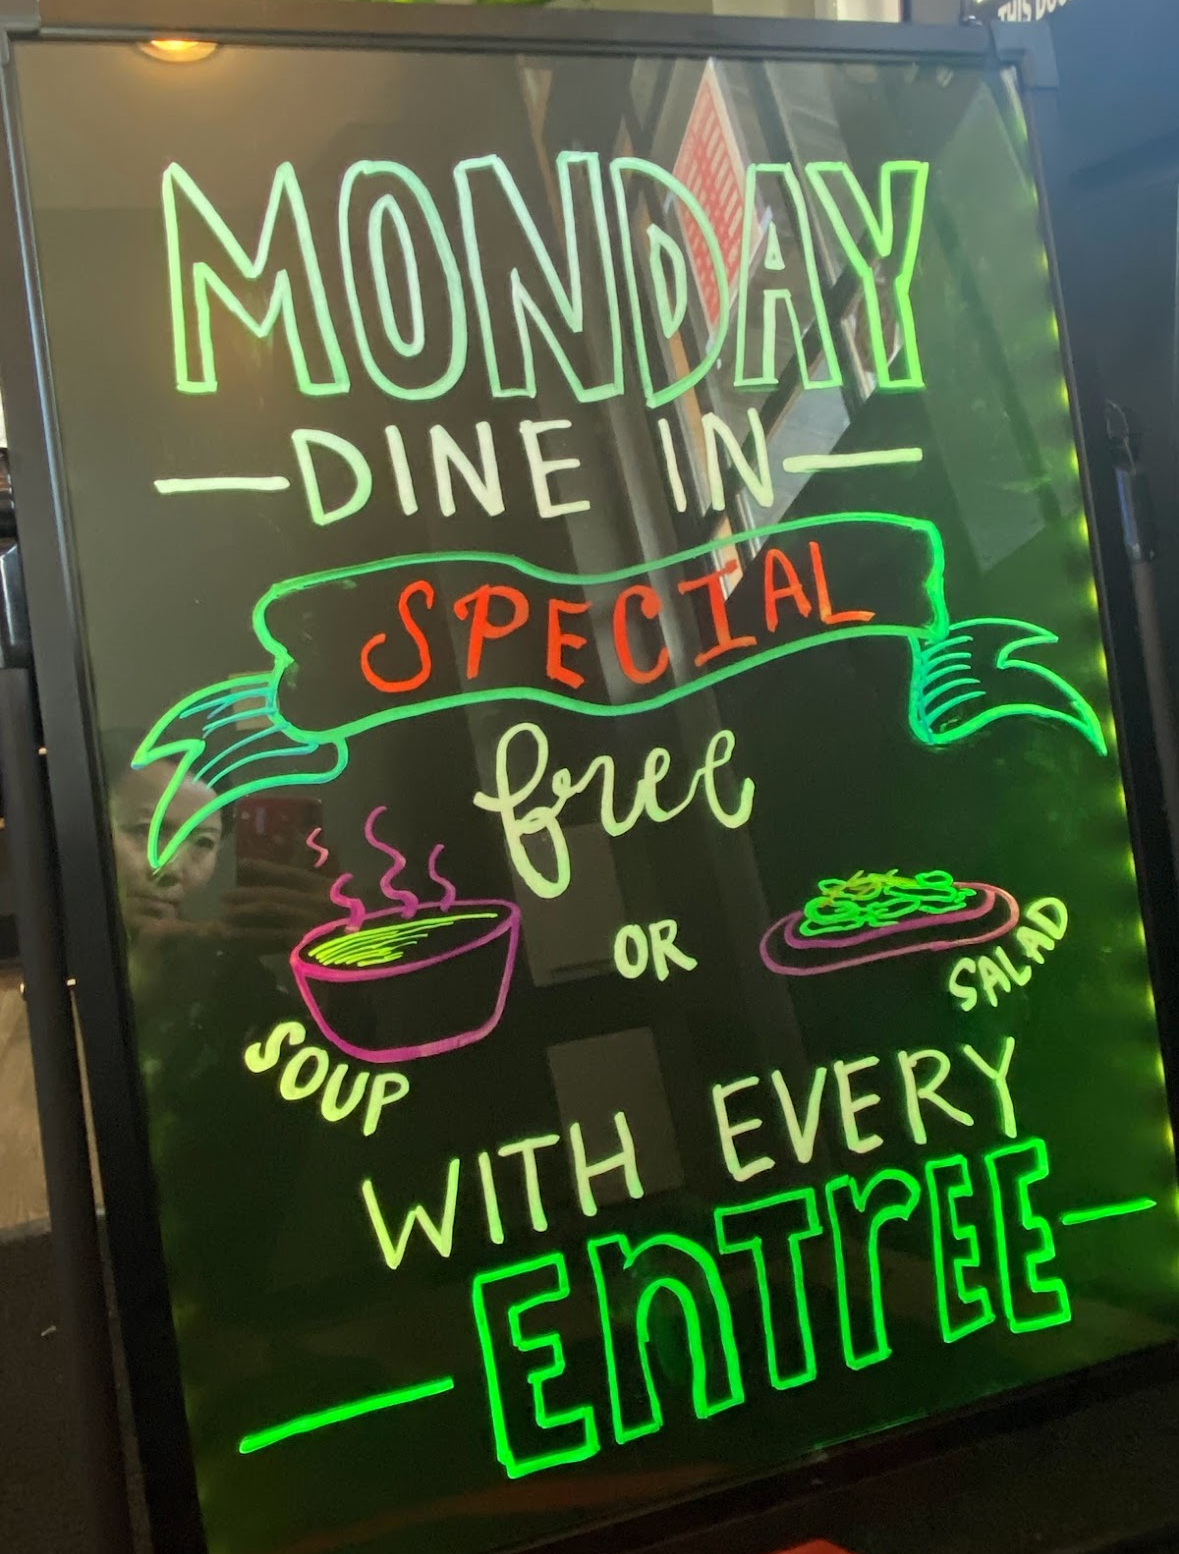 MONDAY
— DINE IN —
SPECIAL
free
SOUP
OR
SALAD
WITH EVERY
— EnTrEE —